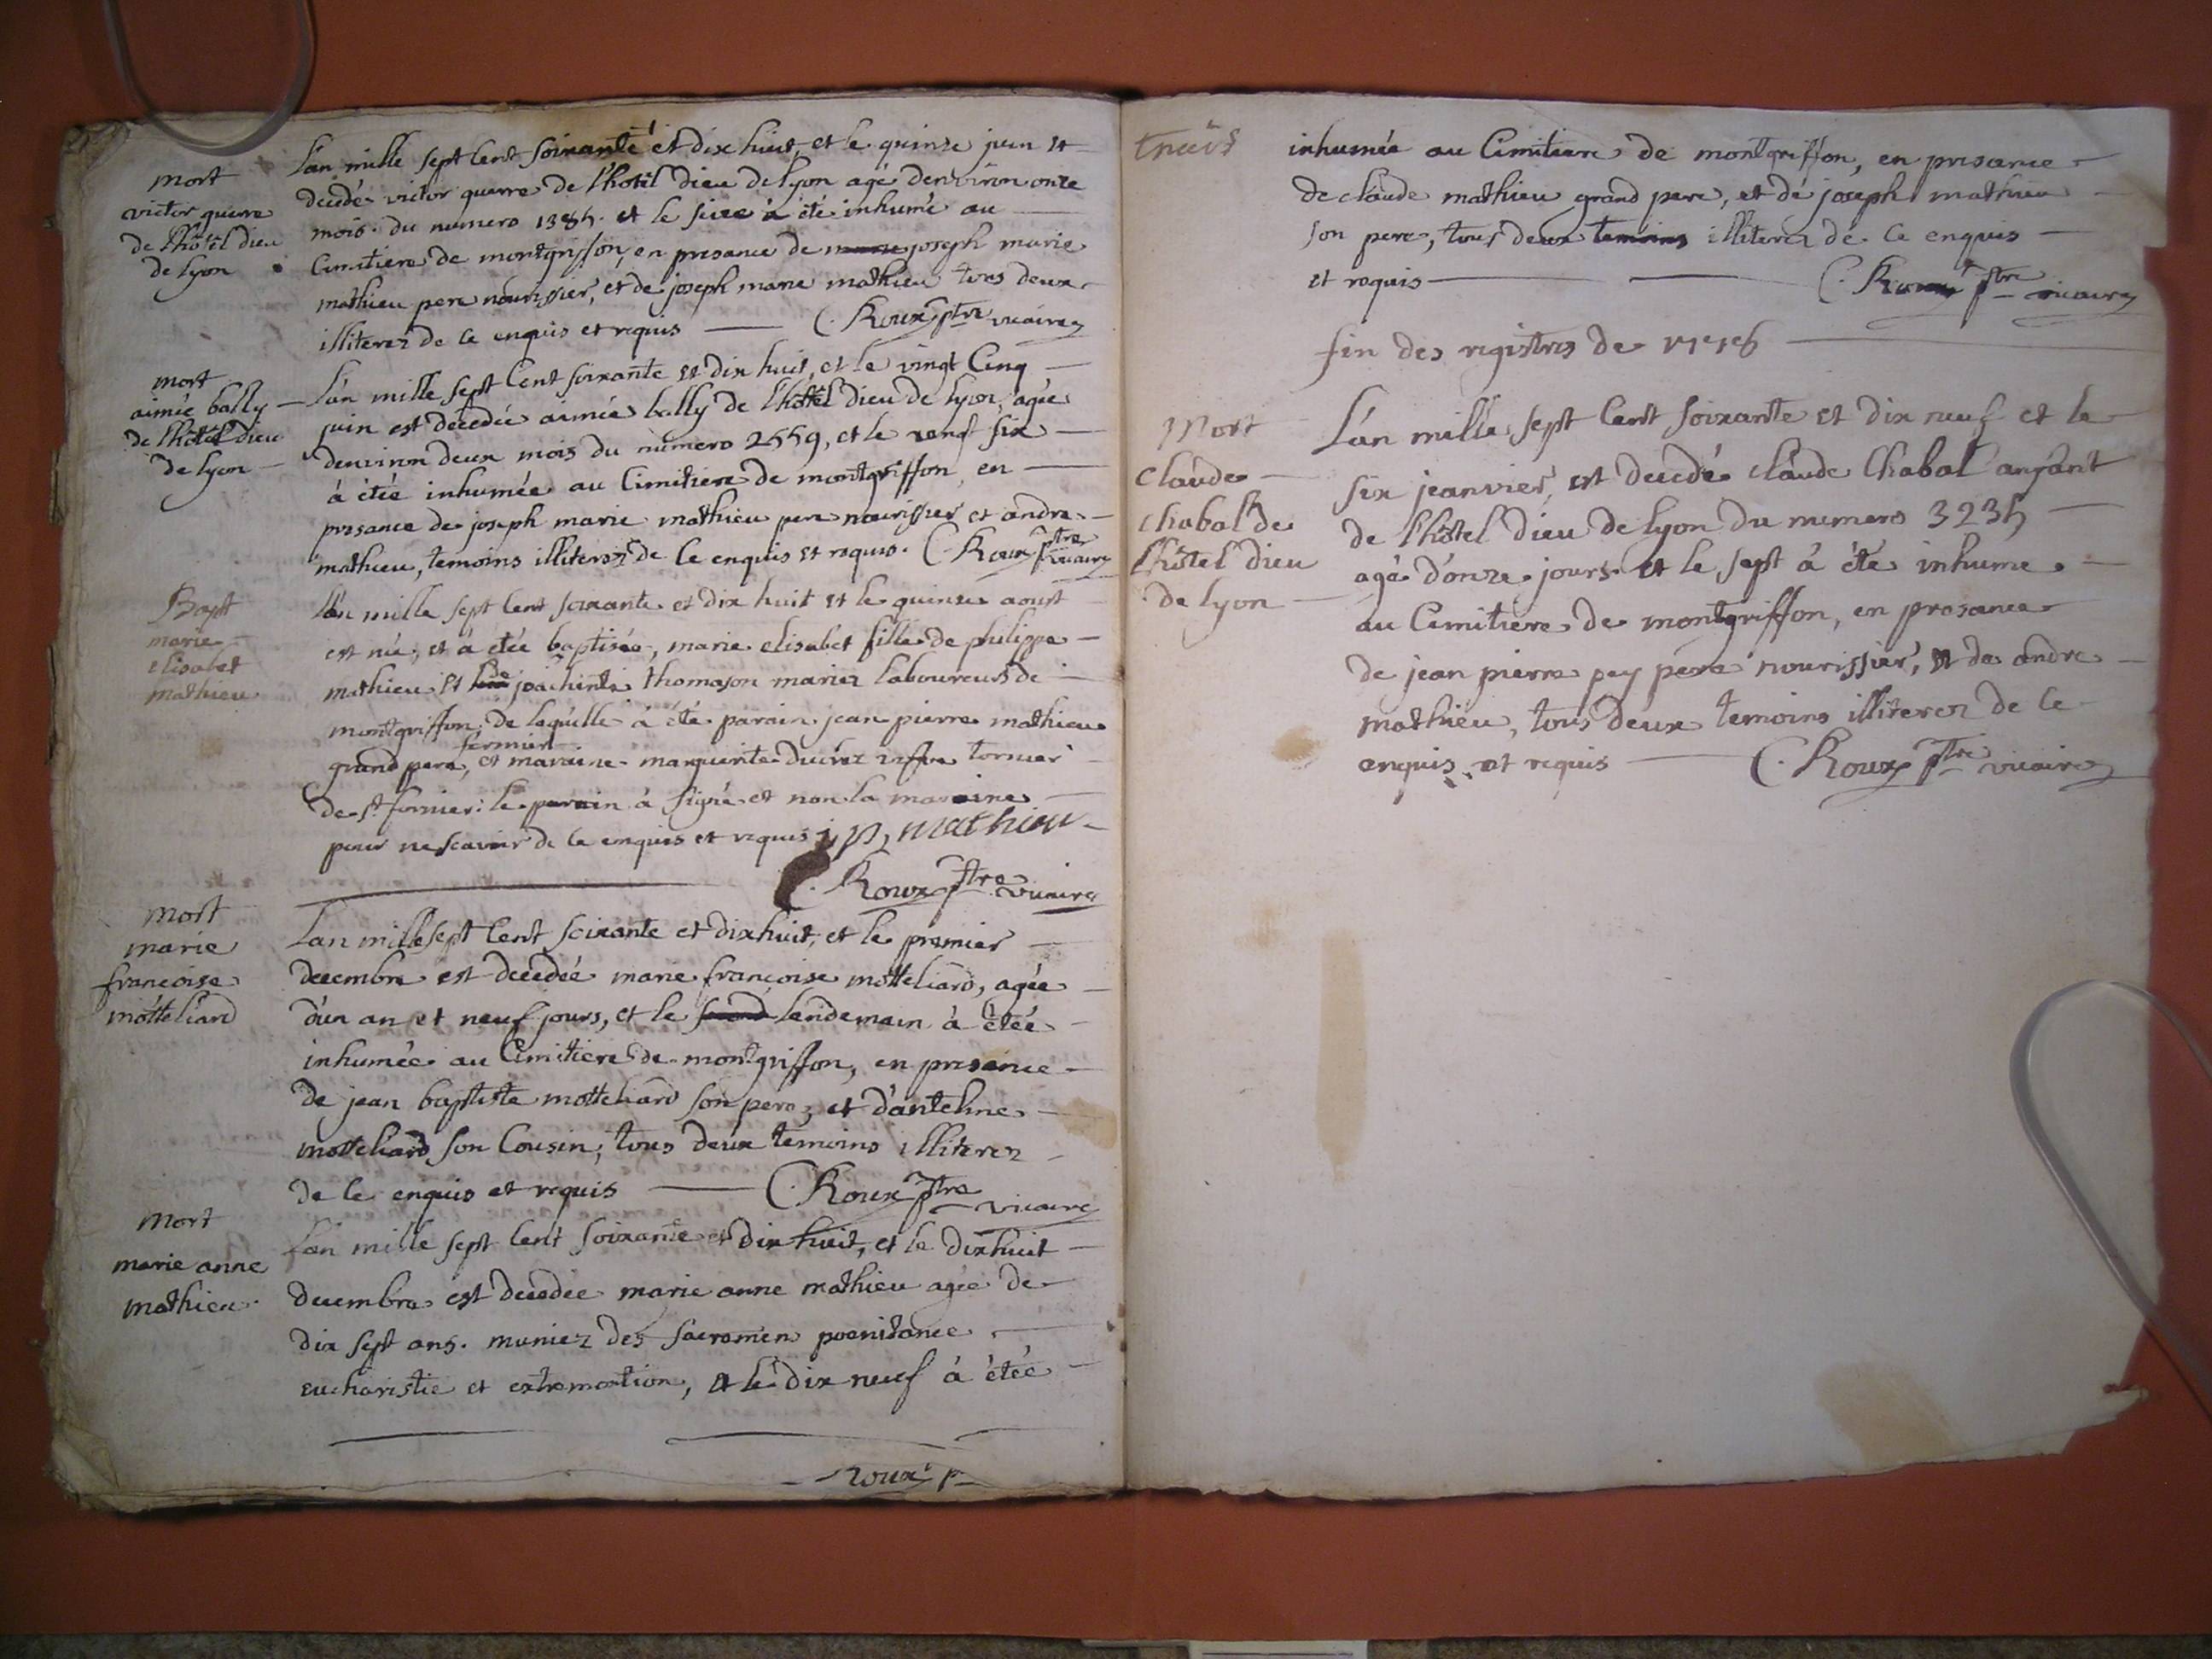 mort
victor guerre
de l'hôtel dieu
de lyon
L'an mille sept cent soixante et dix huit, et le quinze juin et
decedé victor guerre de l'hotel dieu de lyon agé denviron onze
mois du numero 1385. et le seize à été inhumé au
Cimitiere de montgriffon, en presance de joseph marie
mathieu pere nourissier, et de joseph marie mathieu tous deux
illiterez de ce enquis et requis C. Roux ptre vicaire
mort
aimée bally
de l'hôtel dieu
de lyon
L'an mille sept cent soixante et dix huit, et le vingt cinq
juin est decedée aimée bally de l'hôtel dieu de lyon, agée
denviron deux mois du numero 2559, et le vengt six
à étée inhumée au Cimitiere de montgriffon, en
presance de joseph marie mathieu pere nourissier et andre
mathieu, temoins illiterez de ce enquis et requis. C. Roux ptre vicaire
Bapt
marie
elisabet
mathieu
L'an mille sept cent soixante et dix huit et le quinze aoust
est née, et à étée baptisée, marie elisabet fille de philippe
mathieu et de joachinte thomason mariez laboureurs de
montgriffon, de laquelle à été parain jean pierre mathieu
fermier
grand pere, et maraine marguerite ducrez tornier
de st fornier: le parain à signé et non la maraine
pour ne scavoir de ce enquis et requis j, p, mathieu
C. Roux ptre vicaire
mort
marie
francoise
motteliard
L'an mille sept cent soixante et dix huit, et le premier
decembre est decedée marie francoise motteliard, agée
d'un an et neuf jours, et le second lendemain à étée
inhumée au Cimitiere de montgriffon, en presance
de jean baptiste motteliard son pere, et d'antelme
motteliard son Cousin, tous deux temoins illiterez
de ce enquis et requis C. Roux ptre vicaire
mort
marie anne
mathieu
L'an mille sept cent soixante et dix huit, et le dixhuit
decembre est decedée marie anne mathieu agée de
dix sept ans. muniez des sacremen poenitance
eucharistie et extremontion, et le dix neuf à étée
Roux p
inhumée au Cimitiere de montgriffon, en presance
de claude mathieu grand pere, et de joseph mathieu
son pere, tous deux temoins illiterez de ce enquis
et requis C. Roux ptre vicaire
fin des registres de 1778
Mort
Claude
chabal de
l'hôtel dieu
de lyon
L'an mille sept cent soixante et dix neuf et le
six jeanvier, est decedé claude Chabal anfant
de l'hôtel dieu de lyon du numero 3235
agé d'onze jours et le sept à été inhume
au Cimitiere de montgriffon, en presance
de jean pierre pey pere nourissier, et de andre
mathieu, tous deux temoins illiterez de ce
enquis et requis C. Roux ptre vicaire